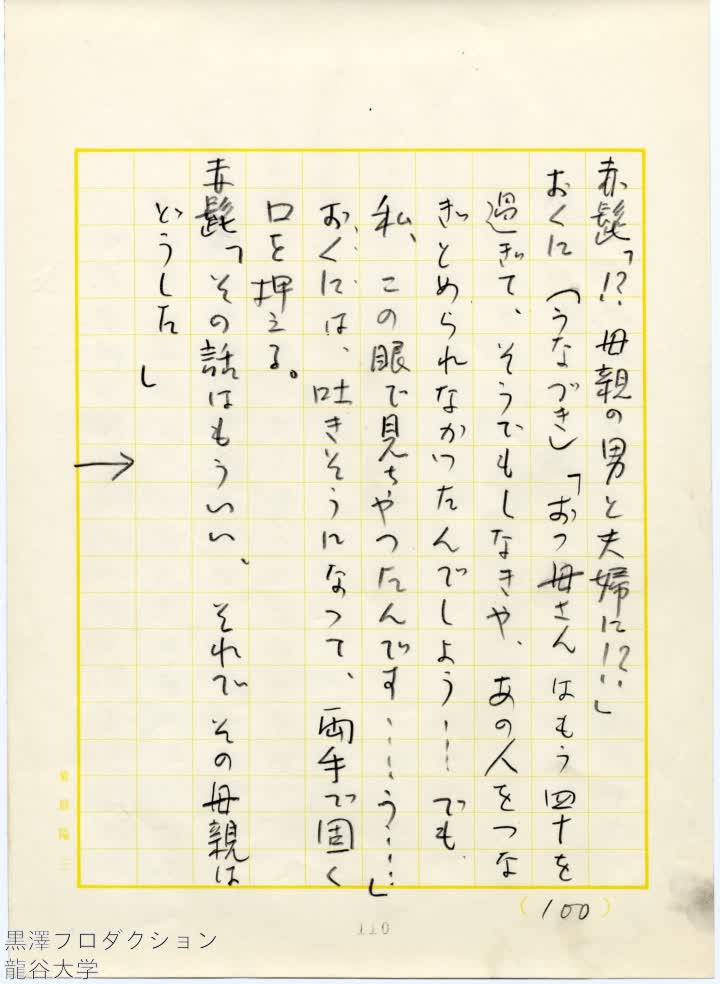 赤髭「!? 母親の男と夫婦に!?‥」
おくに（うなづき）「おつ母さんはもう四十を
過ぎて、そうでもしなきや、あの人をつな
ぎとめられなかつたんでしよう……でも、
私、この眼で見ちやつたんです……う……」
おくには、吐きそうになつて、両手で固く
口を押える。
赤髭「その話はもういい、それでその母親は
どうした」
→
(100)
110
黒澤プロダクション
龍谷大学